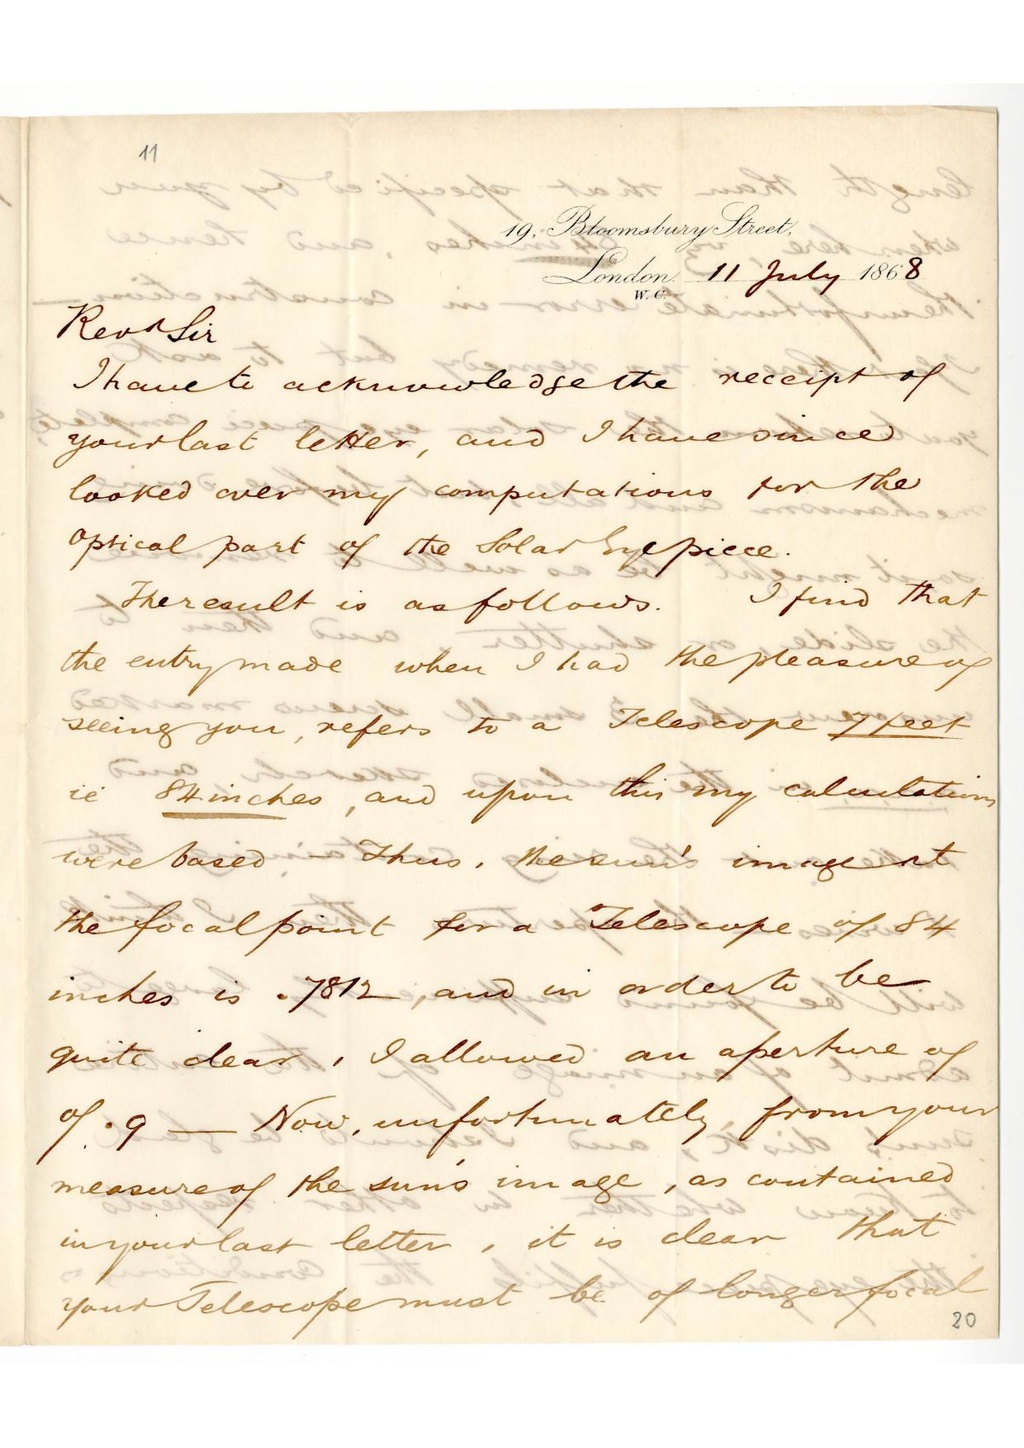 11
19, Bloomsbury Street,
London 11 July 1868
W. C.
Revd Sir
I have to acknowledge the receipt of
your last letter, and I have since
looked over my computations for the
optical part of the Solar Eyepiece.
The result is as follows. I find that
the entry made when I had the pleasure of
seeing you, refers to a Telescope 7 feet
ie 84 inches, and upon this my calculations
were based — Thus, the sun's image at
the focal point for a Telescope of 84
inches is .7812, and in order to be
quite clear, I allowed an aperture of
of .9 — Now, unfortunately, from your
measure of the sun's image, as contained
in your last letter, it is clear that
your Telescope must be of longer focal
20